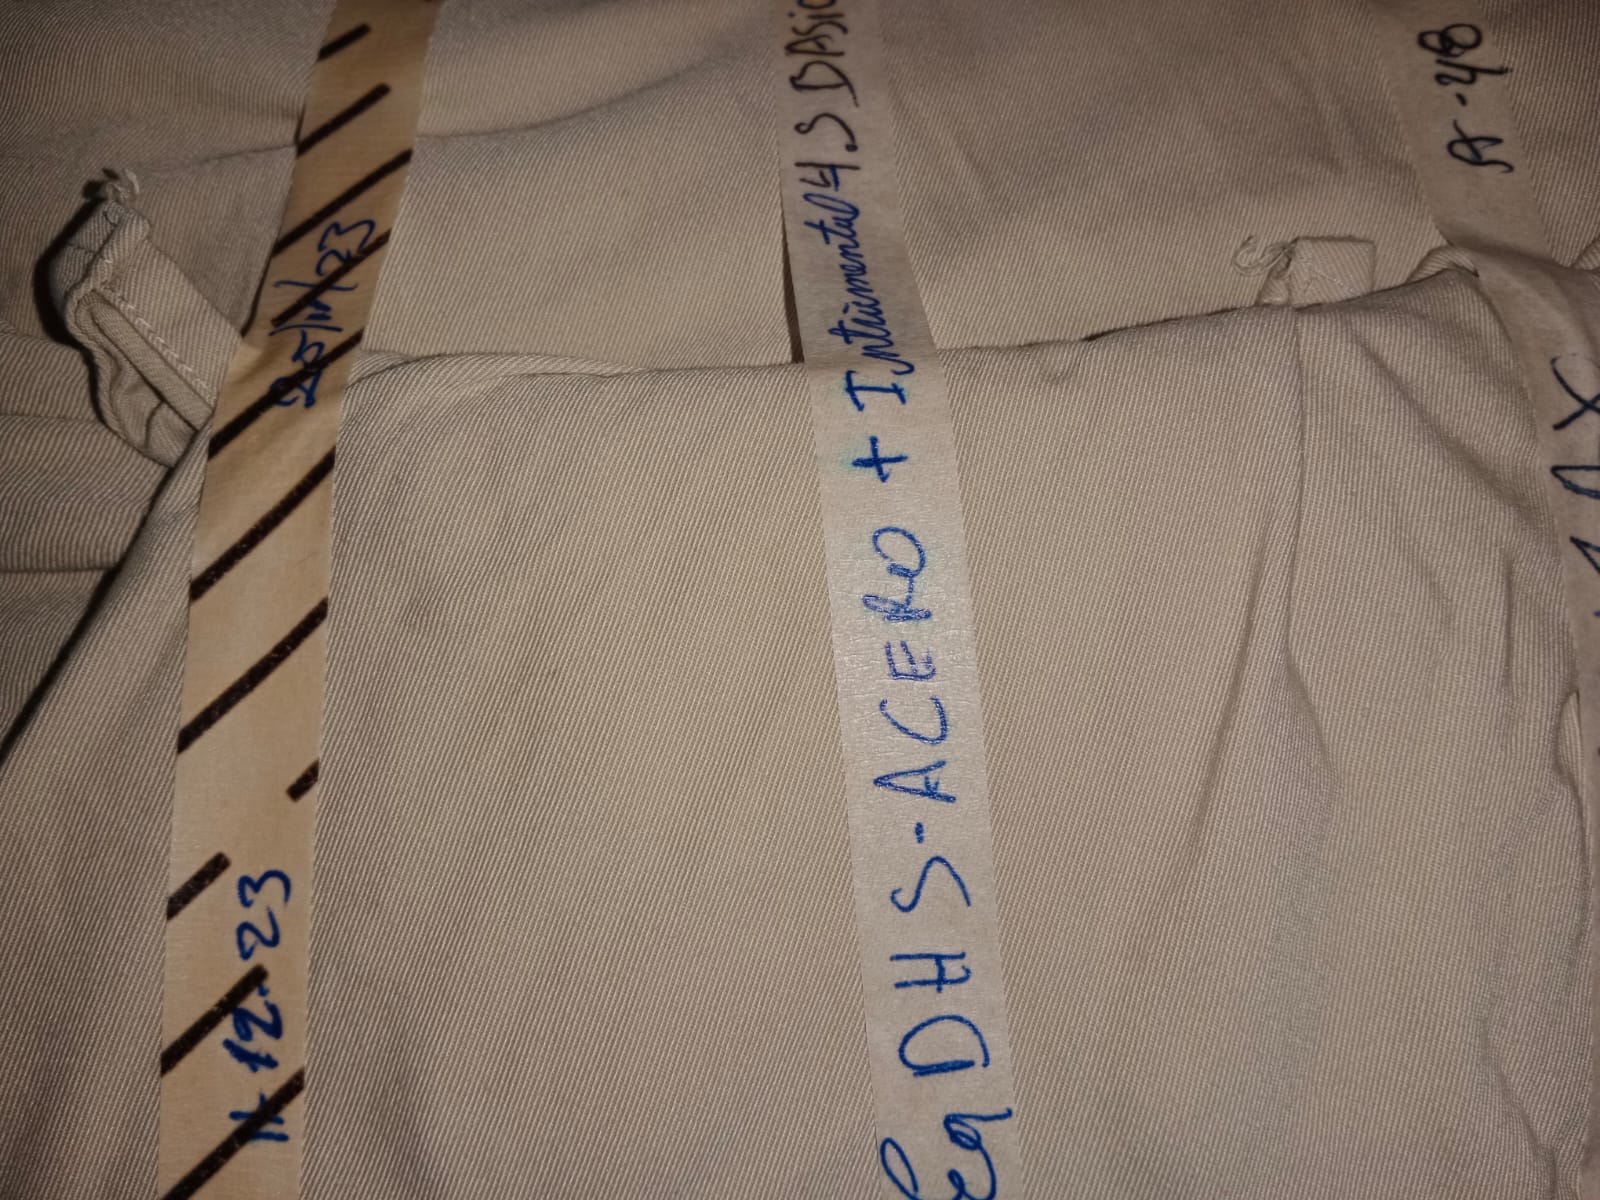 11-12-23
25/11/23
Eq DHS-ACERO + Intrumental 4.S BASIC
A-48